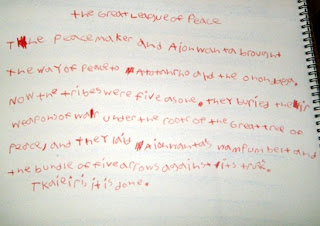 the Great League of Peace
The peacemaker and Aionwanta brought
the way of peace to Atotarho and the ononDaga.
Now the tribes were five as one. they buried their
weapons of war under the roots of the Great tree of
peace, and they laid Aionwanta's wampum belt and
the bundle of five arrows against its trunk.
Tkaieiri, it is done.